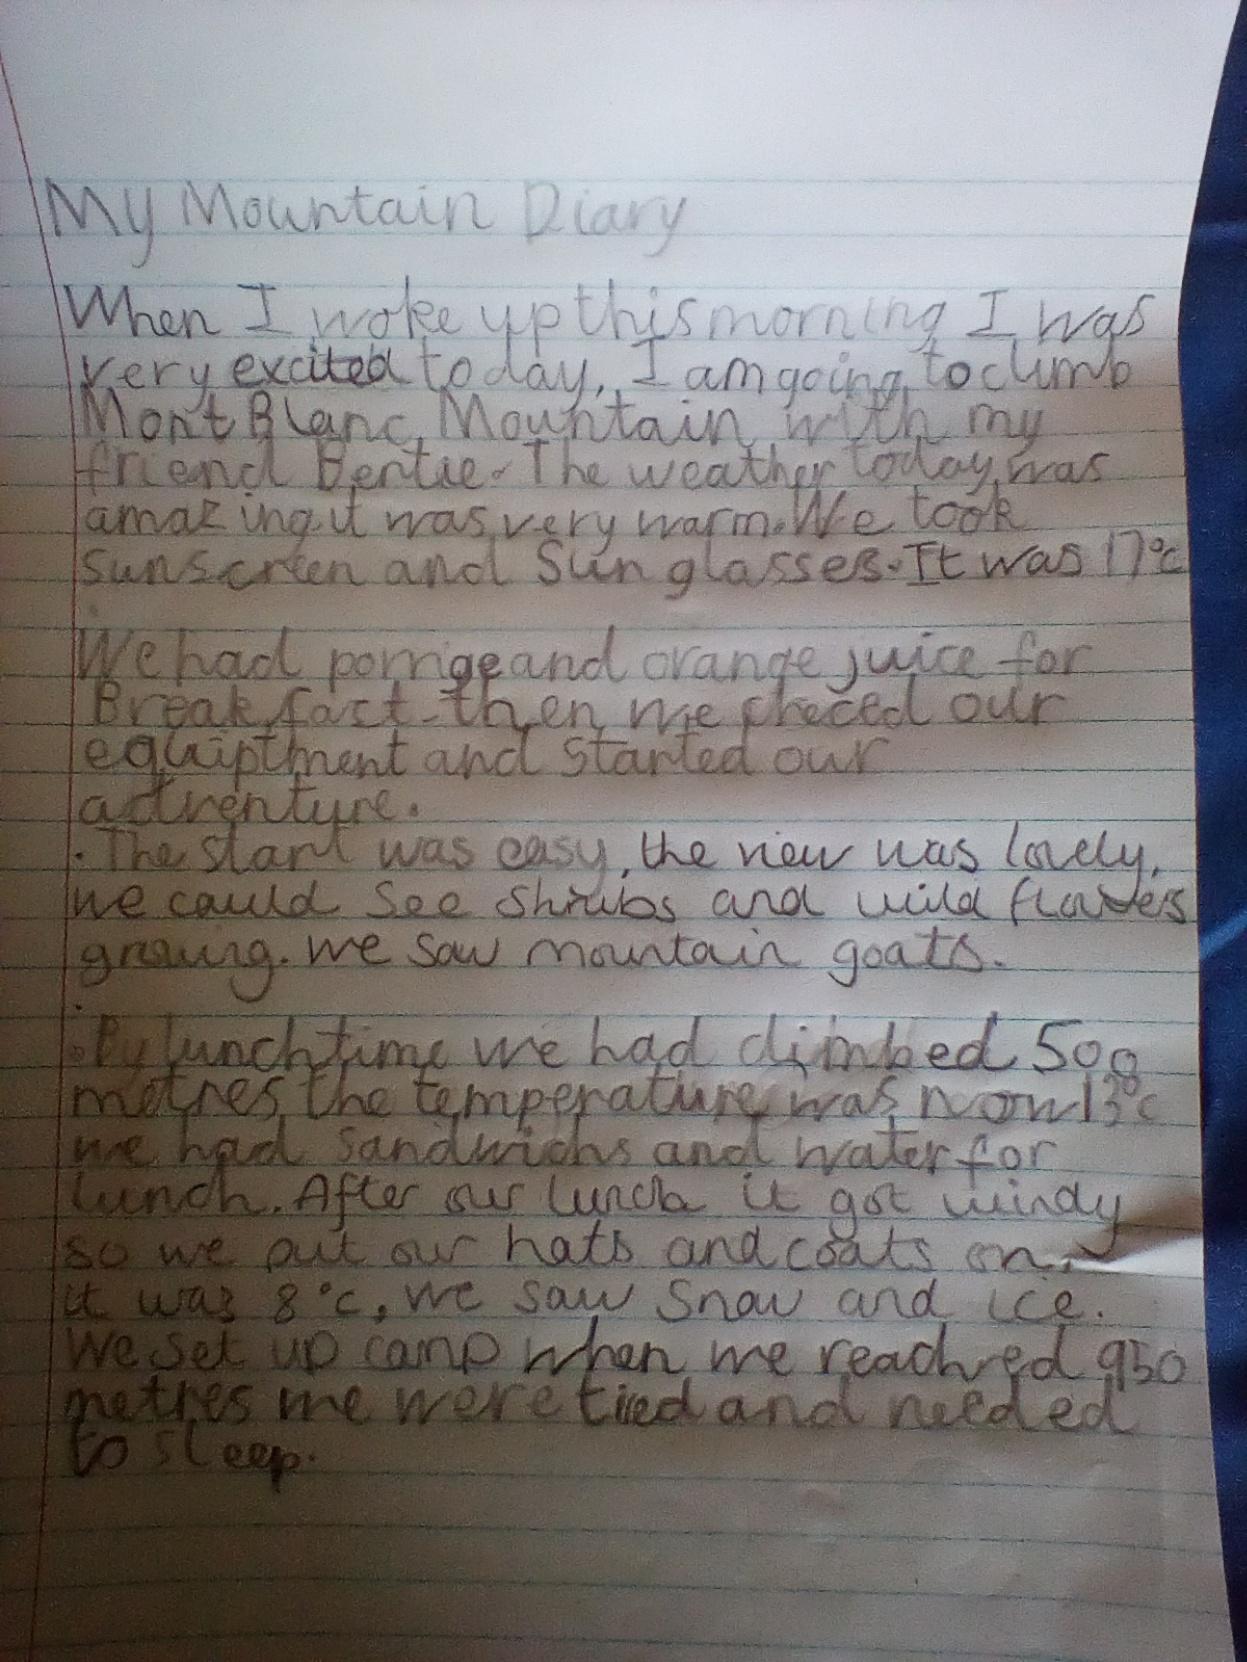 My Mountain Diary
When I woke up this morning I was
very excited today, I am going to climb
Mont Blanc Mountain with my
friend Bertie. The weather today was
amazing it was very warm. We took
sunscreen and Sun glasses. It was 17°c
We had porrige and orange juice for
Breakfast. then we checed our
equiptment and started our
adventure.
. The start was easy, the view was lovely,
we could see shrubs and wild flowers
growing. we saw mountain goats.
By lunchtime we had climbed 500
metres, the temperature was now 13°c
we had sandwichs and water for
lunch. After our lunch it got windy
so we put our hats and coats on.
it was 8°c, we saw snow and ice.
We set up camp when we reached 950
metres we were tired and needed
to sleep.